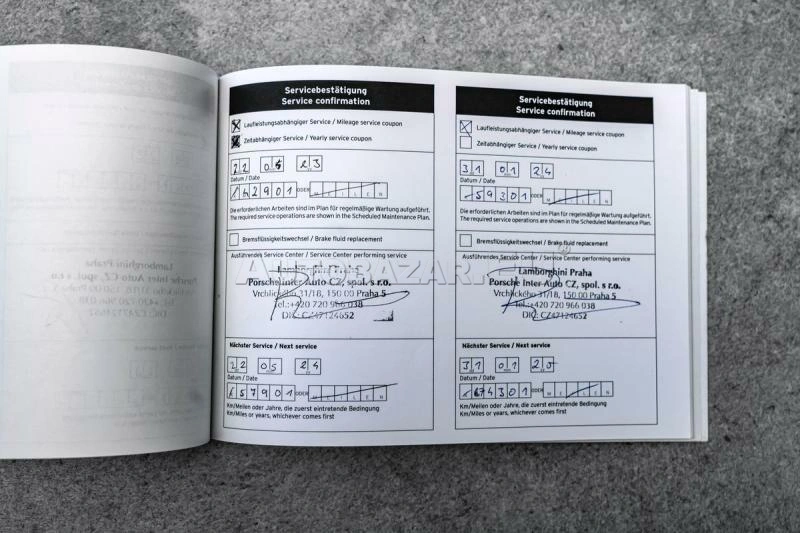 Servicebestätigung
Service confirmation
Laufleistungsabhängiger Service / Mileage service coupon
Zeitabhängiger Service / Yearly service coupon
22 05 23
Datum / Date
42901 ODER MEILEN
Die erforderlichen Arbeiten sind im Plan für regelmäßige Wartung aufgeführt.
The required service operations are shown in the Scheduled Maintenance Plan.
Bremsflüssigkeitswechsel / Brake fluid replacement
Ausführendes Service Center / Service Center performing service
Lamborghini Praha
Porsche Inter Auto CZ, spol. s r.o.
Vrchlického 31/18, 150 00 Praha 5
Tel.:+420 720 966 038
DIČ: CZ47124652
Nächster Service / Next service
22 05 24
Datum / Date
57901 ODER MEILEN
Km/Meilen oder Jahre, die zuerst eintretende Bedingung
Km/Miles or years, whichever comes first
Servicebestätigung
Service confirmation
Laufleistungsabhängiger Service / Mileage service coupon
Zeitabhängiger Service / Yearly service coupon
31 01 24
Datum / Date
59301 ODER MEILEN
Die erforderlichen Arbeiten sind im Plan für regelmäßige Wartung aufgeführt.
The required service operations are shown in the Scheduled Maintenance Plan.
Bremsflüssigkeitswechsel / Brake fluid replacement
Ausführendes Service Center / Service Center performing service
Lamborghini Praha
Porsche Inter Auto CZ, spol. s r.o.
Vrchlického 31/18, 150 00 Praha 5
Tel.:+420 720 966 038
DIČ: CZ47124652
Nächster Service / Next service
31 01 25
Datum / Date
74301 ODER MEILEN
Km/Meilen oder Jahre, die zuerst eintretende Bedingung
Km/Miles or years, whichever comes first
AUTOBAZAR.EU